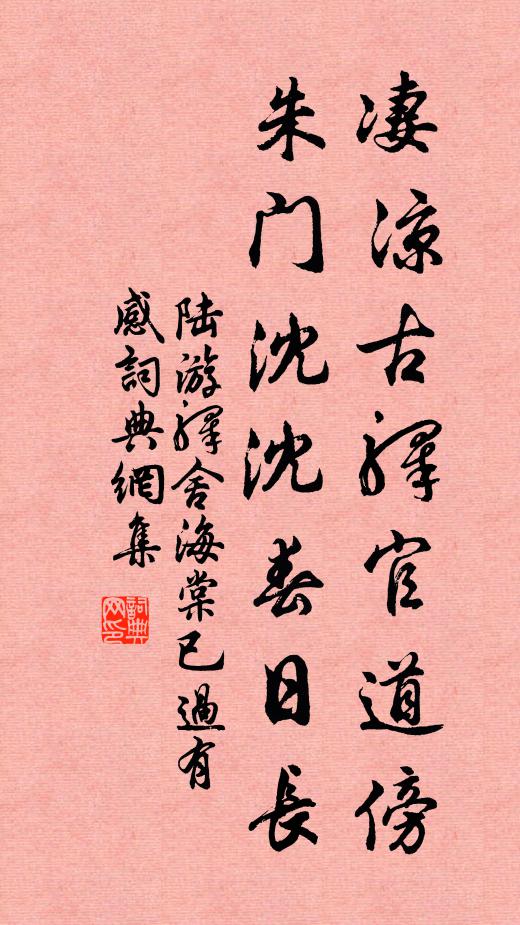 凄涼古驛官道傍
朱門沈沈春日長
陆游驛舍海棠已過有
感詞典網集
詞典
网印